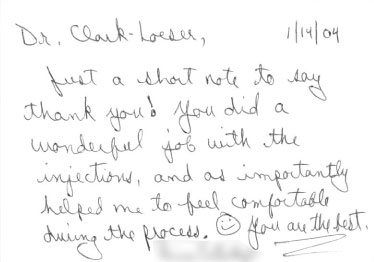 Dr. Clark-Loeser, 1/14/04
Just a short note to say
thank you! You did a
wonderful job with the
injections, and as importantly
helped me to feel comfortable
during the process. You are the best.